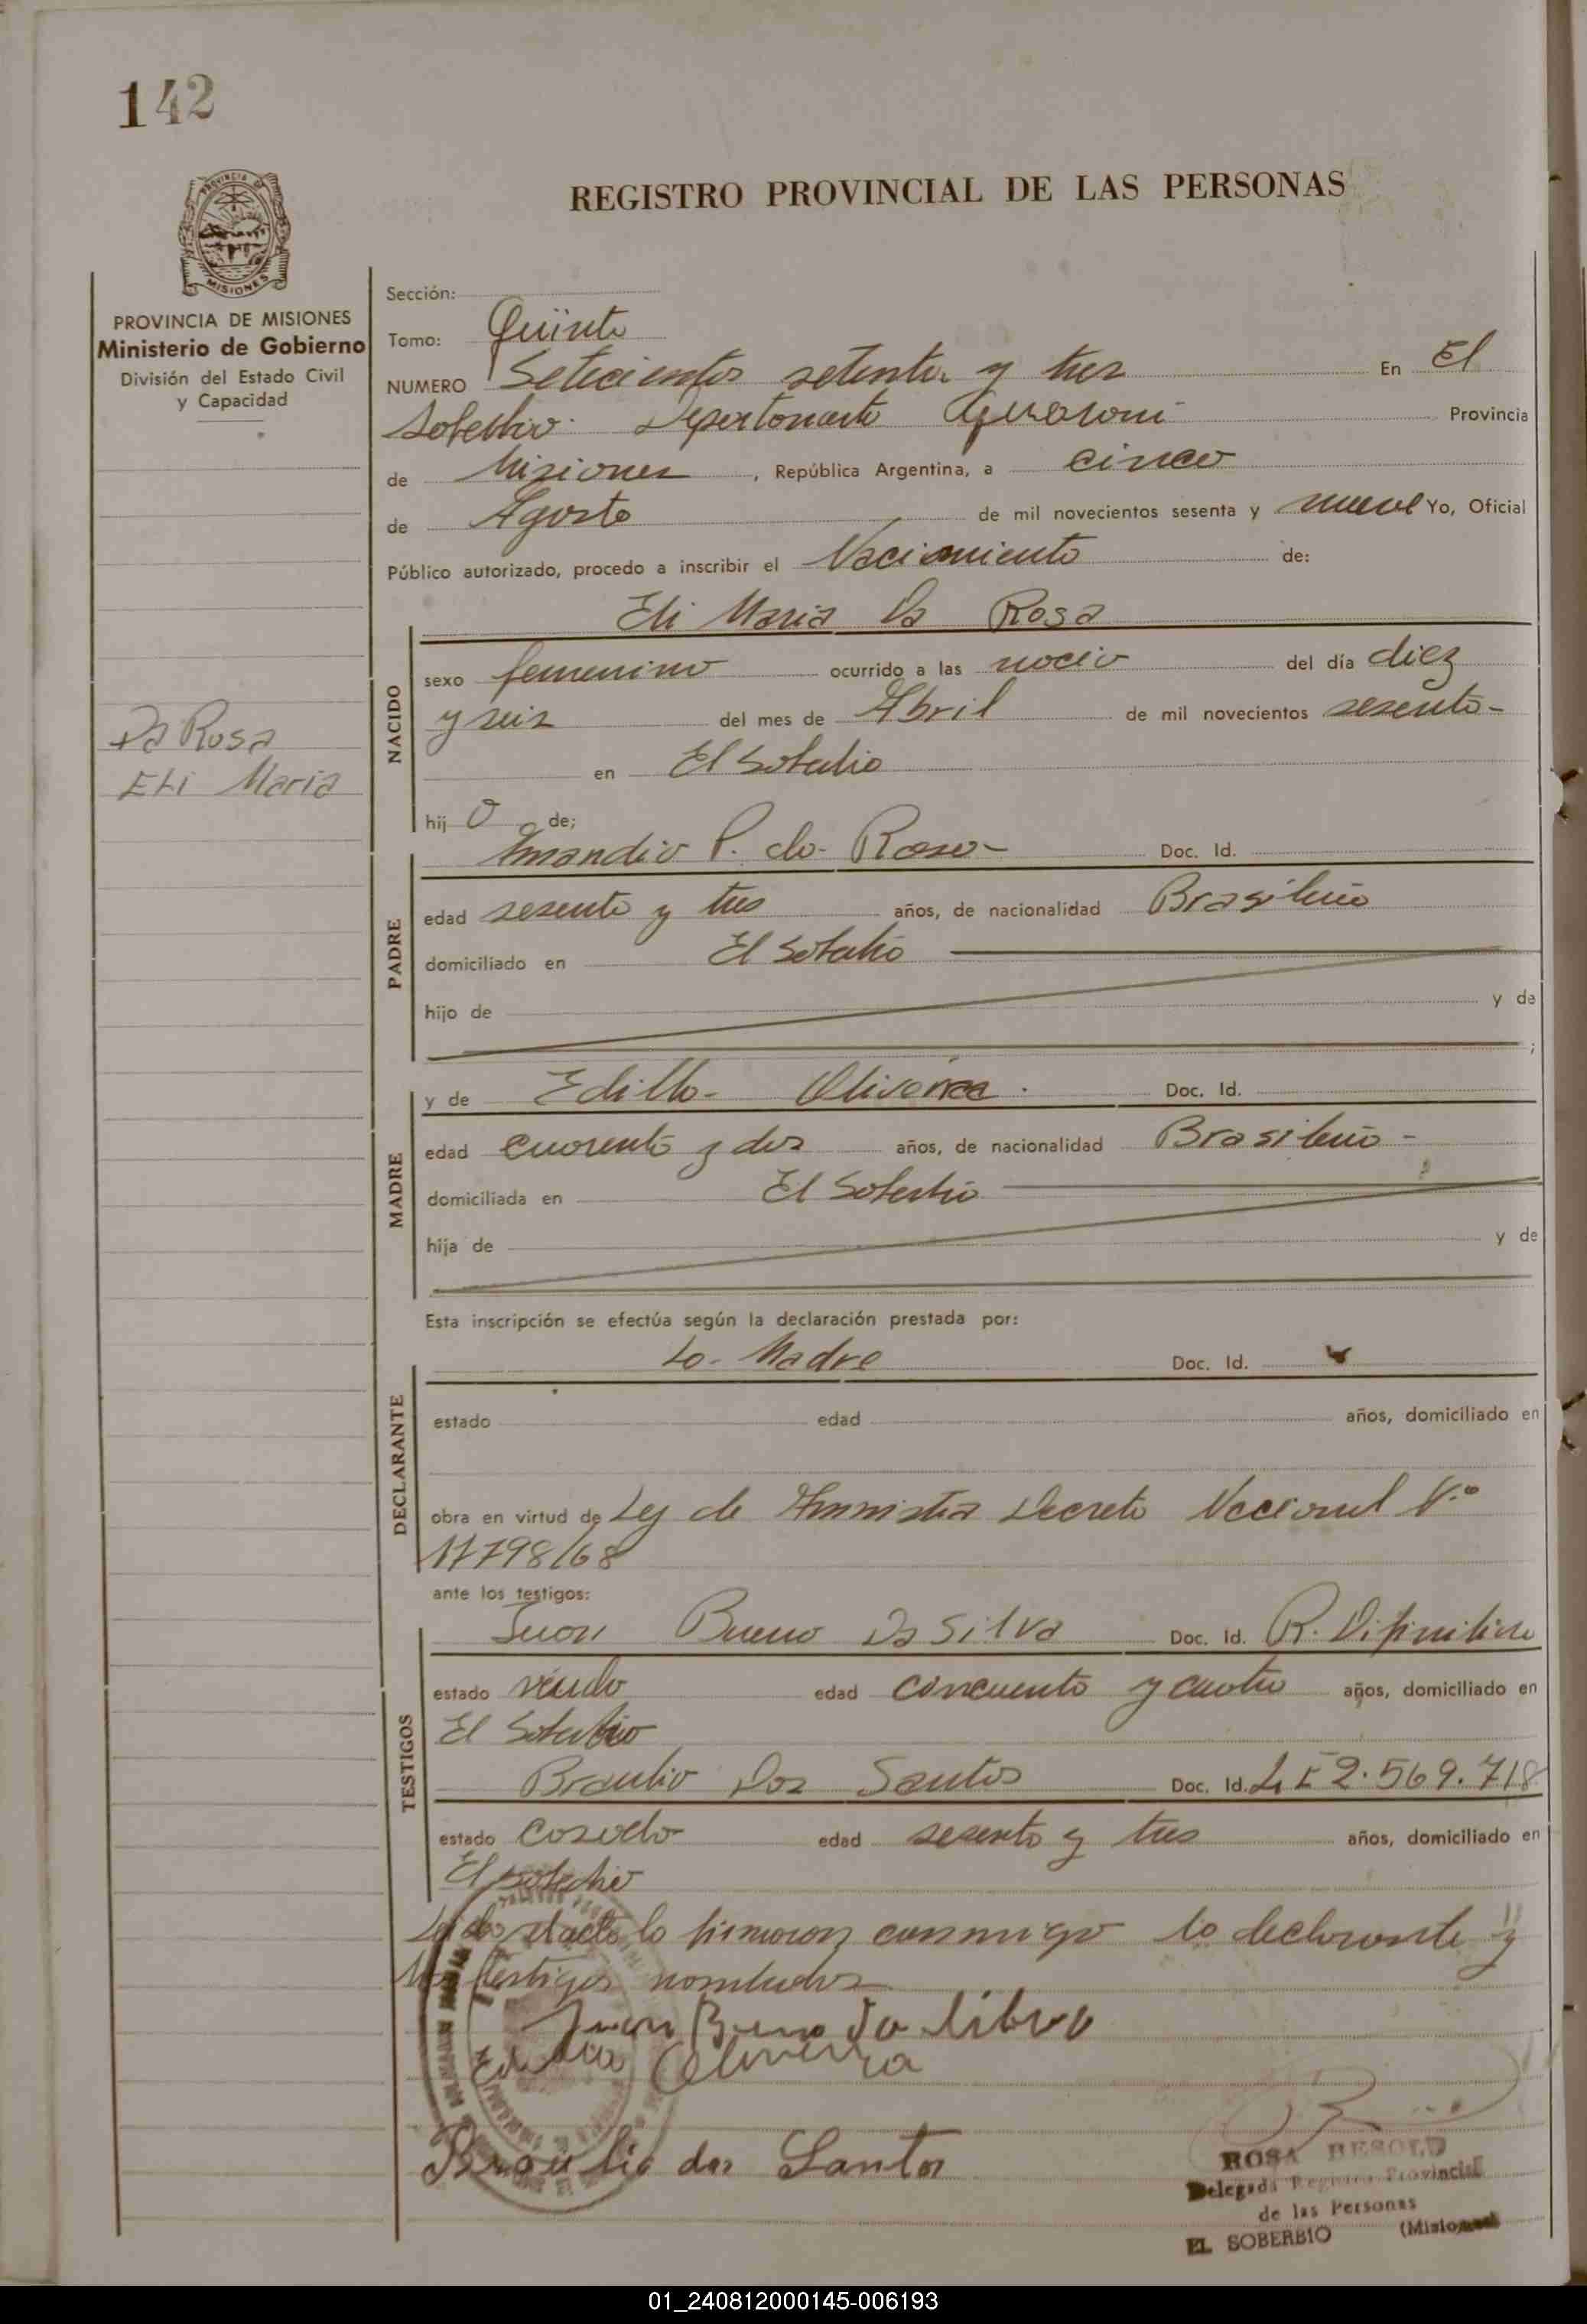 142
REGISTRO PROVINCIAL DE LAS PERSONAS
PROVINCIA DE
MISIONES
PROVINCIA DE MISIONES
Ministerio de Gobierno
División del Estado Civil
y Capacidad
Da Rosa
Eli Maria
Sección:
Tomo: Quinto
NUMERO Setecientos setenta y tres En El
Soberbio Departamento Guarani Provincia
de Misiones, República Argentina, a cinco
de Agosto de mil novecientos sesenta y nueve Yo, Oficial
Público autorizado, procedo a inscribir el Nacimiento de:
Eli Maria Da Rosa
NACIDO
sexo femenino ocurrido a las del día diez
y seis del mes de Abril de mil novecientos sesenta-
en El Soberbio
hij de;
PADRE
P. da Rosa Doc. Id.
edad sesenta y tres años, de nacionalidad Brasileña
domiciliado en El Soberbio
hijo de y de
;
MADRE
y de Oliveira Doc. Id.
edad cuarenta y dos años, de nacionalidad Brasileña-
domiciliada en El Soberbio
hija de y de
Esta inscripción se efectúa según la declaración prestada por:
DECLARANTE
La Madre Doc. Id.
estado edad años, domiciliado en
obra en virtud de Ley de Amnistia Decreto Nacional N.º
17798/68
ante los testigos:
TESTIGOS
Juan Bueno Da Silva Doc. Id. R.
estado viudo edad cincuenta y cuatro años, domiciliado en
El Soberbio
Braulio Dos Santos Doc. Id. L E 2.569.718
estado casado edad sesenta y tres años, domiciliado en
El Soberbio
Leida el acta la firmaron conmigo la declarante y
los testigos nombrados
Juan Bueno da silva
Oliveira
Braulio dos Santos
ROSA BESOLD
Delegada Registro Provincial
de las Personas
EL SOBERBIO (Misiones)
01_240812000145-006193